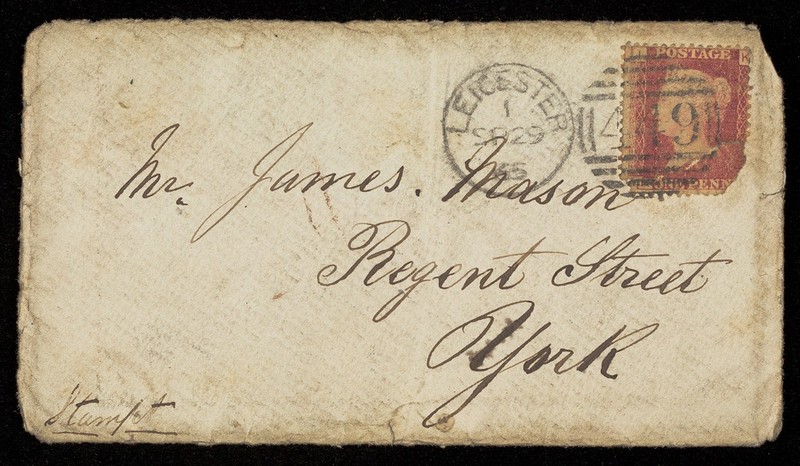 LEICESTER
1
SP 29
65
449
I POSTAGE K
ONE PENNY
Mr. James. Mason
Regent Street
York
Stampt